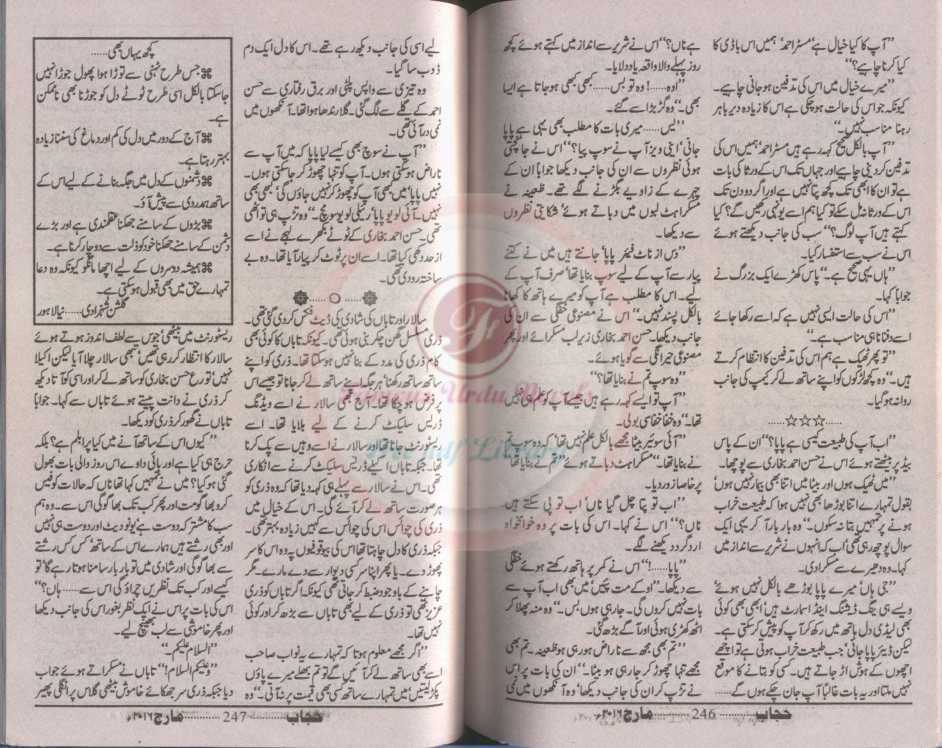 ”آپ کا کیا خیال ہے‘ مسٹر احمد‘ ہمیں اس باڈی کا
کیا کرنا چاہیے؟“
”میرے خیال میں اس کی تدفین ہو جانی چاہیے۔
کیونکہ جو اس کی حالت ہو چکی ہے اس کا زیادہ دیر باہر
رہنا مناسب نہیں۔“
”آپ بالکل صحیح کہہ رہے ہیں مسٹر احمد‘ ہمیں اس کی
تدفین کر دینی چاہیے اور جہاں تک اس کے ورثا کی بات
ہے تو ان کا ابھی تک کچھ پتا نہیں ہے اور اگر دو دن تک
اس کے ورثا نہ مل سکے تو کیا ہم اسے یونہی رکھیں گے؟ کیا
کہتے ہیں آپ لوگ؟“ سب کی جانب دیکھتے ہوئے
اس نے سب سے استفسار کیا۔
”ہاں یہی صحیح ہے۔“ پاس کھڑے ایک بزرگ نے
جواباً کہا۔
”اس کی حالت ایسی نہیں ہے کہ اسے رکھا جائے
اسے دفنانا ہی مناسب ہے۔“
”تو پھر ٹھیک ہے ہم اس کی تدفین کا انتظام کرتے
ہیں۔“ وہ کچھ لڑکوں کو اپنے ساتھ لے کر کیمپ کی جانب
روانہ ہو گیا۔
☆☆☆
”اب آپ کی طبیعت کیسی ہے پاپا؟“ ان کے پاس
بیڈ پر بیٹھتے ہوئے اس نے حسن احمد بخاری سے پوچھا۔
”میں ٹھیک ہوں اور بیٹا میں اتنا بھی بیمار نہیں ہوں‘
بقول تمہارے اتنا بوڑھا بھی نہیں ہوا کہ طبیعت خراب
ہونے پر تمہیں بتا نہ سکوں۔“ وہ بار بار آ کر یہی ایک
سوال پوچھ رہی تھی‘ اب کہ انہوں نے شریر سے انداز میں
کہا۔ وہ دھیرے سے مسکرا دی۔
”جی ہاں‘ میرے پاپا بوڑھے بالکل نہیں ہوئے
ویسے ہی ینگ ڈیشنگ اینڈ اسمارٹ ہیں‘ ابھی بھی کوئی
بھی لیڈی دل ہاتھ میں رکھ کر آپ کو پیش کر سکتی ہے۔
لیکن ڈیئر پاپا جانی‘ جب طبیعت خراب ہوتی ہے تو اچھے
اچھوں کے ہوش اڑ جاتے ہیں۔ کسی کو بتانے کا موقع
نہیں ملتا اور یہ بات غالباً آپ جان چکے ہوں گے......
ہے ناں؟“ اس نے شریر سے انداز میں کہتے ہوئے کچھ
روز پہلے والا واقعہ یاد دلایا۔
”اوہ......! وہ تو بس...... کبھی کبھی ہو جاتا ہے ایسا
بھی۔“ وہ گڑبڑا سے گئے۔
”یس...... میری بات کا مطلب بھی یہی ہے پاپا
جانی‘ اینی ویز آپ نے سوپ پیا؟“ اس نے جانچتی
ہوئی نظروں سے ان کی جانب دیکھا جواباً ان کے
چہرے کے زاویے بگڑنے لگے تھے۔ ظعینہ نے
مسکراہٹ لبوں میں دباتے ہوئے‘ شکایتی نظروں
سے دیکھا۔
”دس از ناٹ فیئر پاپا‘ جانتے ہیں میں نے کتنے
پیار سے آپ کے لیے سوپ بنایا تھا‘ صرف آپ کے
لیے۔ اس کا مطلب ہے آپ کو میرے ہاتھ کا کھانا
بالکل پسند نہیں۔“ اس نے مصنوعی خفگی سے ان کی
جانب دیکھا۔ حسن احمد بخاری زیر لب مسکرائے اور پھر
مصنوعی حیرانگی سے گویا ہوئے۔
”وہ سوپ تم نے بنایا تھا؟“
”آپ تو ایسے کہہ رہے ہیں جیسے آپ کو معلوم ہی نہیں
تھا۔“ وہ خفا خفا سی بولی۔
”آئی سوئیر بیٹا مجھے بالکل علم نہیں تھا کہ وہ سوپ تم
نے بنایا تھا۔“ مسکراہٹ دباتے ہوئے ”تم نے بنایا تھا“
پر خاصا زور دیا۔
”اب تو پتا چل گیا ناں‘ اب تو پی سکتے ہیں
ناں؟“ اس نے کہا۔ اس کی بات پر وہ خوامخواہ
ارد گرد دیکھنے لگے۔
”پاپا......!“ اس نے کمر پر ہاتھ رکھتے ہوئے خفگی
سے دیکھا۔ ”اوکے مت پیئیں‘ میں بھی اب آپ سے
بات نہیں کروں گی۔ جا رہی ہوں بس۔“ وہ منہ پھلا کر
اٹھ کھڑی ہوئی اور آگے بڑھ گئی۔
”تم بھی مجھ سے ناراض ہو رہی ہو ظعینہ۔ تم بھی
مجھے تنہا چھوڑ کر جا رہی ہو بیٹا۔“ ان کی بات پر اس
نے تڑپ کر ان کی جانب دیکھا‘ وہ آنکھوں میں نمی
حجاب ............ 246 ............ مارچ ۲۰۱۶ء
لیے اسی کی جانب دیکھ رہے تھے۔ اس کا دل ایک دم
ڈوب سا گیا۔
وہ تیزی سے واپس پلٹی اور برق رفتاری سے حسن
احمد کے گلے سے لگ گئی۔ گلا رندھا ہوا تھا۔ آنکھوں میں
نمی در آئی تھی۔
”آپ نے سوچ بھی کیسے لیا پاپا کہ میں آپ سے
ناراض ہو سکتی ہوں۔ آپ کو تنہا چھوڑ کر جا سکتی ہوں۔
نہیں پاپا‘ میں کبھی آپ کو چھوڑ کر نہیں جاؤں گی‘ کبھی بھی
نہیں۔ آئی لو یو پاپا‘ رئیلی لو یو سو مچ۔“ وہ تڑپ ہی تو اٹھی
تھی۔ حسن احمد بخاری کے ٹوٹے بکھرے لہجے نے اسے
از حد دکھی کیا تھا۔ اسے ان پر ٹوٹ کر پیار آیا تھا۔ وہ بے
ساختہ رو دی تھی۔
سالار اور تاباں کی شادی کی ڈیٹ فکس کر دی گئی تھی۔
ذری مسلسل گھن چکر بنی ہوئی تھی۔ کیونکہ تاباں کا کوئی بھی
کام ذری کی مدد کے بنا نہیں ہو سکتا تھا۔ ذری کو اپنے
ساتھ ساتھ رکھنا‘ ہر جگہ اپنے ساتھ لے کر جانا تو جیسے اس
پر فرض ہو چکا تھا۔ آج بھی سالار نے اسے ویڈنگ
ڈریس سلیکٹ کرنے کے لیے بلایا تھا۔ اسے
ریسٹورنٹ میں آنا تھا اور سالار نے اسے وہیں سے پک کرنا
تھا۔ جبکہ تاباں اکیلے ڈریس سلیکٹ کرنے سے انکاری
تھی۔ اس نے سالار سے پہلے ہی کہہ دیا تھا کہ وہ ذری کو
ہر صورت ساتھ لے کر آئے گی۔ اس کے خیال میں
ذری کی چوائس اس کی چوائس سے کہیں زیادہ بہتر تھی۔
جبکہ ذری کا دل چاہتا تھا اس کی بیوقوفیوں پہ وہ اس کا سر
پھوڑ دے۔ یا پھر اپنا سر کسی دیوار سے دے مارے۔ مگر
چاہنے کے باوجود ضبط کر جاتی تھی کیونکہ اگر تاباں کو ذری
عزیز تھی تو ذری کے لیے بھی تاباں سے بڑھ کر اور کوئی
نہیں تھا۔
”اگر مجھے معلوم ہوتا کہ تمہارے یہ نواب صاحب
اسے بھی ساتھ لے کر آئیں گے تو تم بھلے میرے پاؤں
پکڑ لیتیں میں تمہارے ساتھ کسی بھی قیمت پر نہ آتی۔“ وہ
کچھ یہاں بھی......
⌘ جس طرح ٹہنی سے توڑا ہوا پھول جوڑا نہیں
جا سکتا بالکل اسی طرح ٹوٹے دل کو جوڑنا بھی ناممکن
ہے۔
⌘ آج کے دور میں دل کی کم اور دماغ کی سننا زیادہ
بہتر رہتا ہے۔
⌘ دشمنوں کے دل میں جگہ بنانے کے لیے اس کے
ساتھ ہمدردی سے پیش آؤ۔
⌘ بڑوں کے سامنے جھکنا عقلمندی ہے اور بڑے
دشمن کے سامنے جھکنا خود کو ذلت سے دوچار کرنا ہے۔
⌘ ہمیشہ دوسروں کے لیے اچھا مانگو کیونکہ وہ دعا
تمہارے حق میں بھی قبول ہو سکتی ہے۔
گلشن شہزادی...... نیا لاہور
ریسٹورنٹ میں بیٹھی‘ جوس سے لطف اندوز ہوتے ہوئے
سالار کا انتظار کر رہی تھیں‘ تبھی سالار چلا آیا لیکن اکیلا
نہیں‘ تورع حسن بخاری کو ساتھ لے کر اور اسی کو آتا دیکھ
کر ذری نے دانت پیستے ہوئے تاباں سے کہا۔ جواباً
تاباں نے گھور کر ذری کو دیکھا۔
”کیوں اس کے ساتھ آنے میں کیا پرابلم ہے؟ بلکہ
حرج ہی کیا ہے اور بائی دا وے اس روز والی بات بھول
گئی ہو کیا؟ میں نے تمہیں کہا تھا ناں کہ حالات کو فیس
کرو بھاگو مت اور پھر کب تک بھاگو گی اس سے۔ وہ ہم
سب کا مشترکہ دوست ہے یو نو دیٹ اور دوست ہی نہیں
اور بھی رشتے ہیں ہمارے اس کے ساتھ‘ کس کس رشتے
سے بھاگو گی اور شادی میں تو بار بار سامنا ہوتا رہے گا‘ تو
کیسے اور کب تک نظریں چراؤ گی اس سے...... ہاں؟“
اس کی بات پر اس نے ایک نظر بغور اس کی جانب دیکھا
اور پھر خاموشی سے لب بھینچ لیے۔
”السلام علیکم۔“
”وعلیکم السلام!“ تاباں نے مسکراتے ہوئے جواب
دیا جبکہ ذری سر جھکائے خاموش بیٹھی گلاس پر انگلی پھیر
حجاب ............ 247 ............ مارچ ۲۰۱۶ء
Famous Urdu Novels